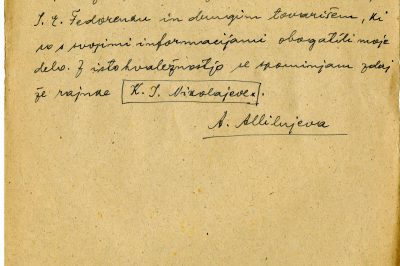 I. E. Fedorenku in drugim tovarišem, ki
so s svojimi informacijami obogatili moje
delo. Z isto hvaležnostjo se spominjam zdaj
že rajnke K. I. Nikolajeve.
A. Allilujeva